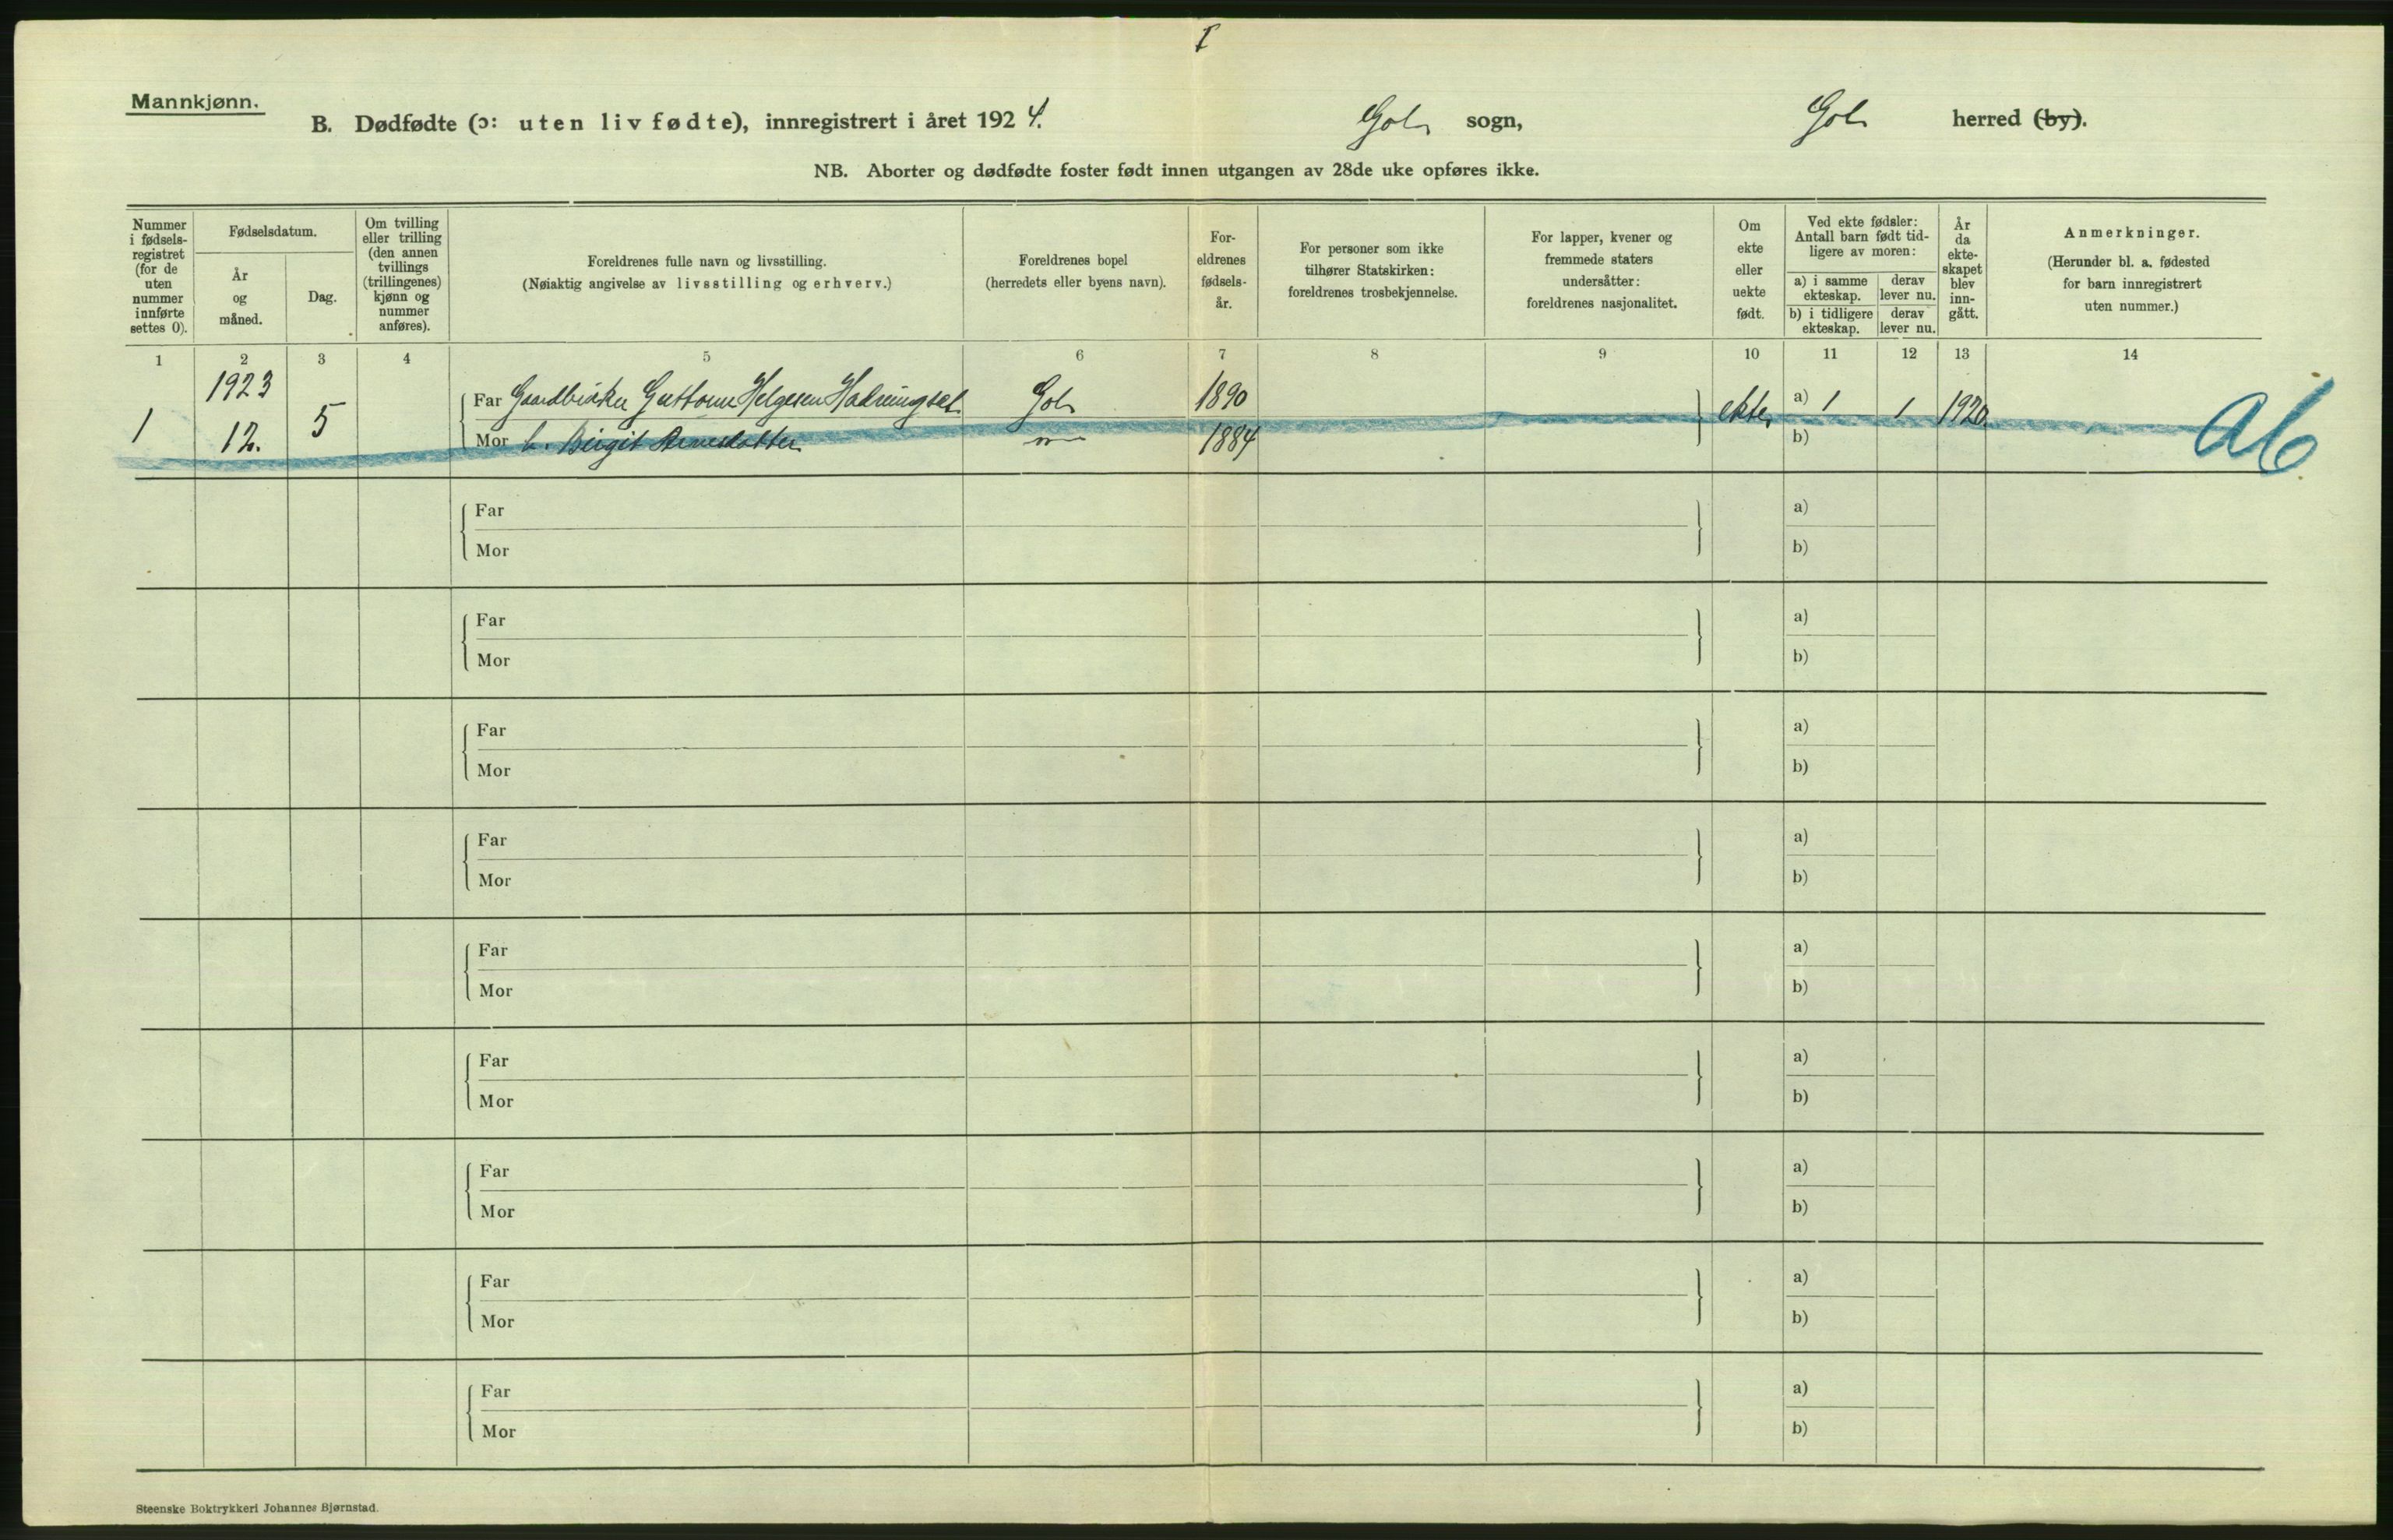 I
Mannkjønn.
B. Dødfødte (ɔ: uten liv fødte), innregistrert i året 1924. Gol sogn, Gol herred (by).
NB. Aborter og dødfødte foster født innen utgangen av 28de uke opføres ikke.
Nummer i fødsels-registret (for de uten nummer innførte settes 0).
Fødselsdatum.
År og måned.
Dag.
Om tvilling eller trilling (den annen tvillings (trillingenes) kjønn og nummer anføres).
Foreldrenes fulle navn og livsstilling.
(Nøiaktig angivelse av livsstilling og erhverv.)
Foreldrenes bopel
(herredets eller byens navn).
For-eldrenes fødsels-år.
For personer som ikke tilhører Statskirken: foreldrenes trosbekjennelse.
For lapper, kvener og fremmede staters undersåtter: foreldrenes nasjonalitet.
Om ekte eller uekte født.
Ved ekte fødsler: Antall barn født tid-ligere av moren:
a) i samme ekteskap. derav lever nu.
b) i tidligere ekteskap. derav lever nu.
År da ekte-skapet blev inn-gått.
Anmerkninger.
(Herunder bl. a. fødested for barn innregistrert uten nummer.)
1 2 3 4 5 6 7 8 9 10 11 12 13 14
1 1923 12. 5
Far Gaardbruker Guttorm Helgesen Gol 1890 ekte a) 1 1 1920
Mor h. Birgit Arnesdatter 1884 b)
Ab
Far a)
Mor b)
Far a)
Mor b)
Far a)
Mor b)
Far a)
Mor b)
Far a)
Mor b)
Far a)
Mor b)
Far a)
Mor b)
Far a)
Mor b)
Far a)
Mor b)
Steenske Boktrykkeri Johannes Bjørnstad.